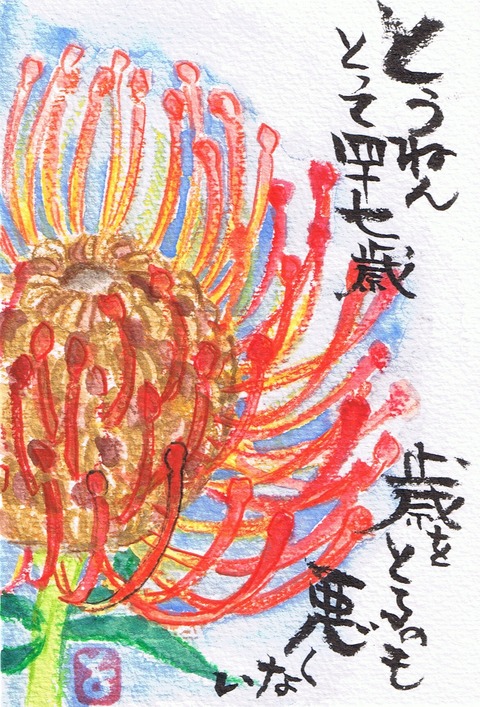 とうねん
とって四十七歳
歳をとるのも
悪く
ない